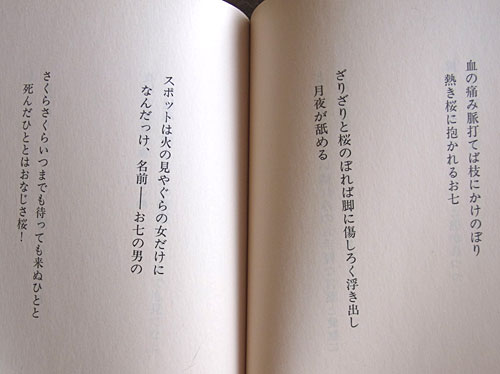 血の痛み脈打てば枝にかけのぼり
熱き桜に抱かれるお七
ざりざりと桜のぼれば脚に傷しろく浮き出し
月夜が舐める
スポットは火の見やぐらの女だけに
なんだっけ、名前──お七の男の
さくらさくらいつまでも待っても来ぬひとと
死んだひととはおなじさ桜！